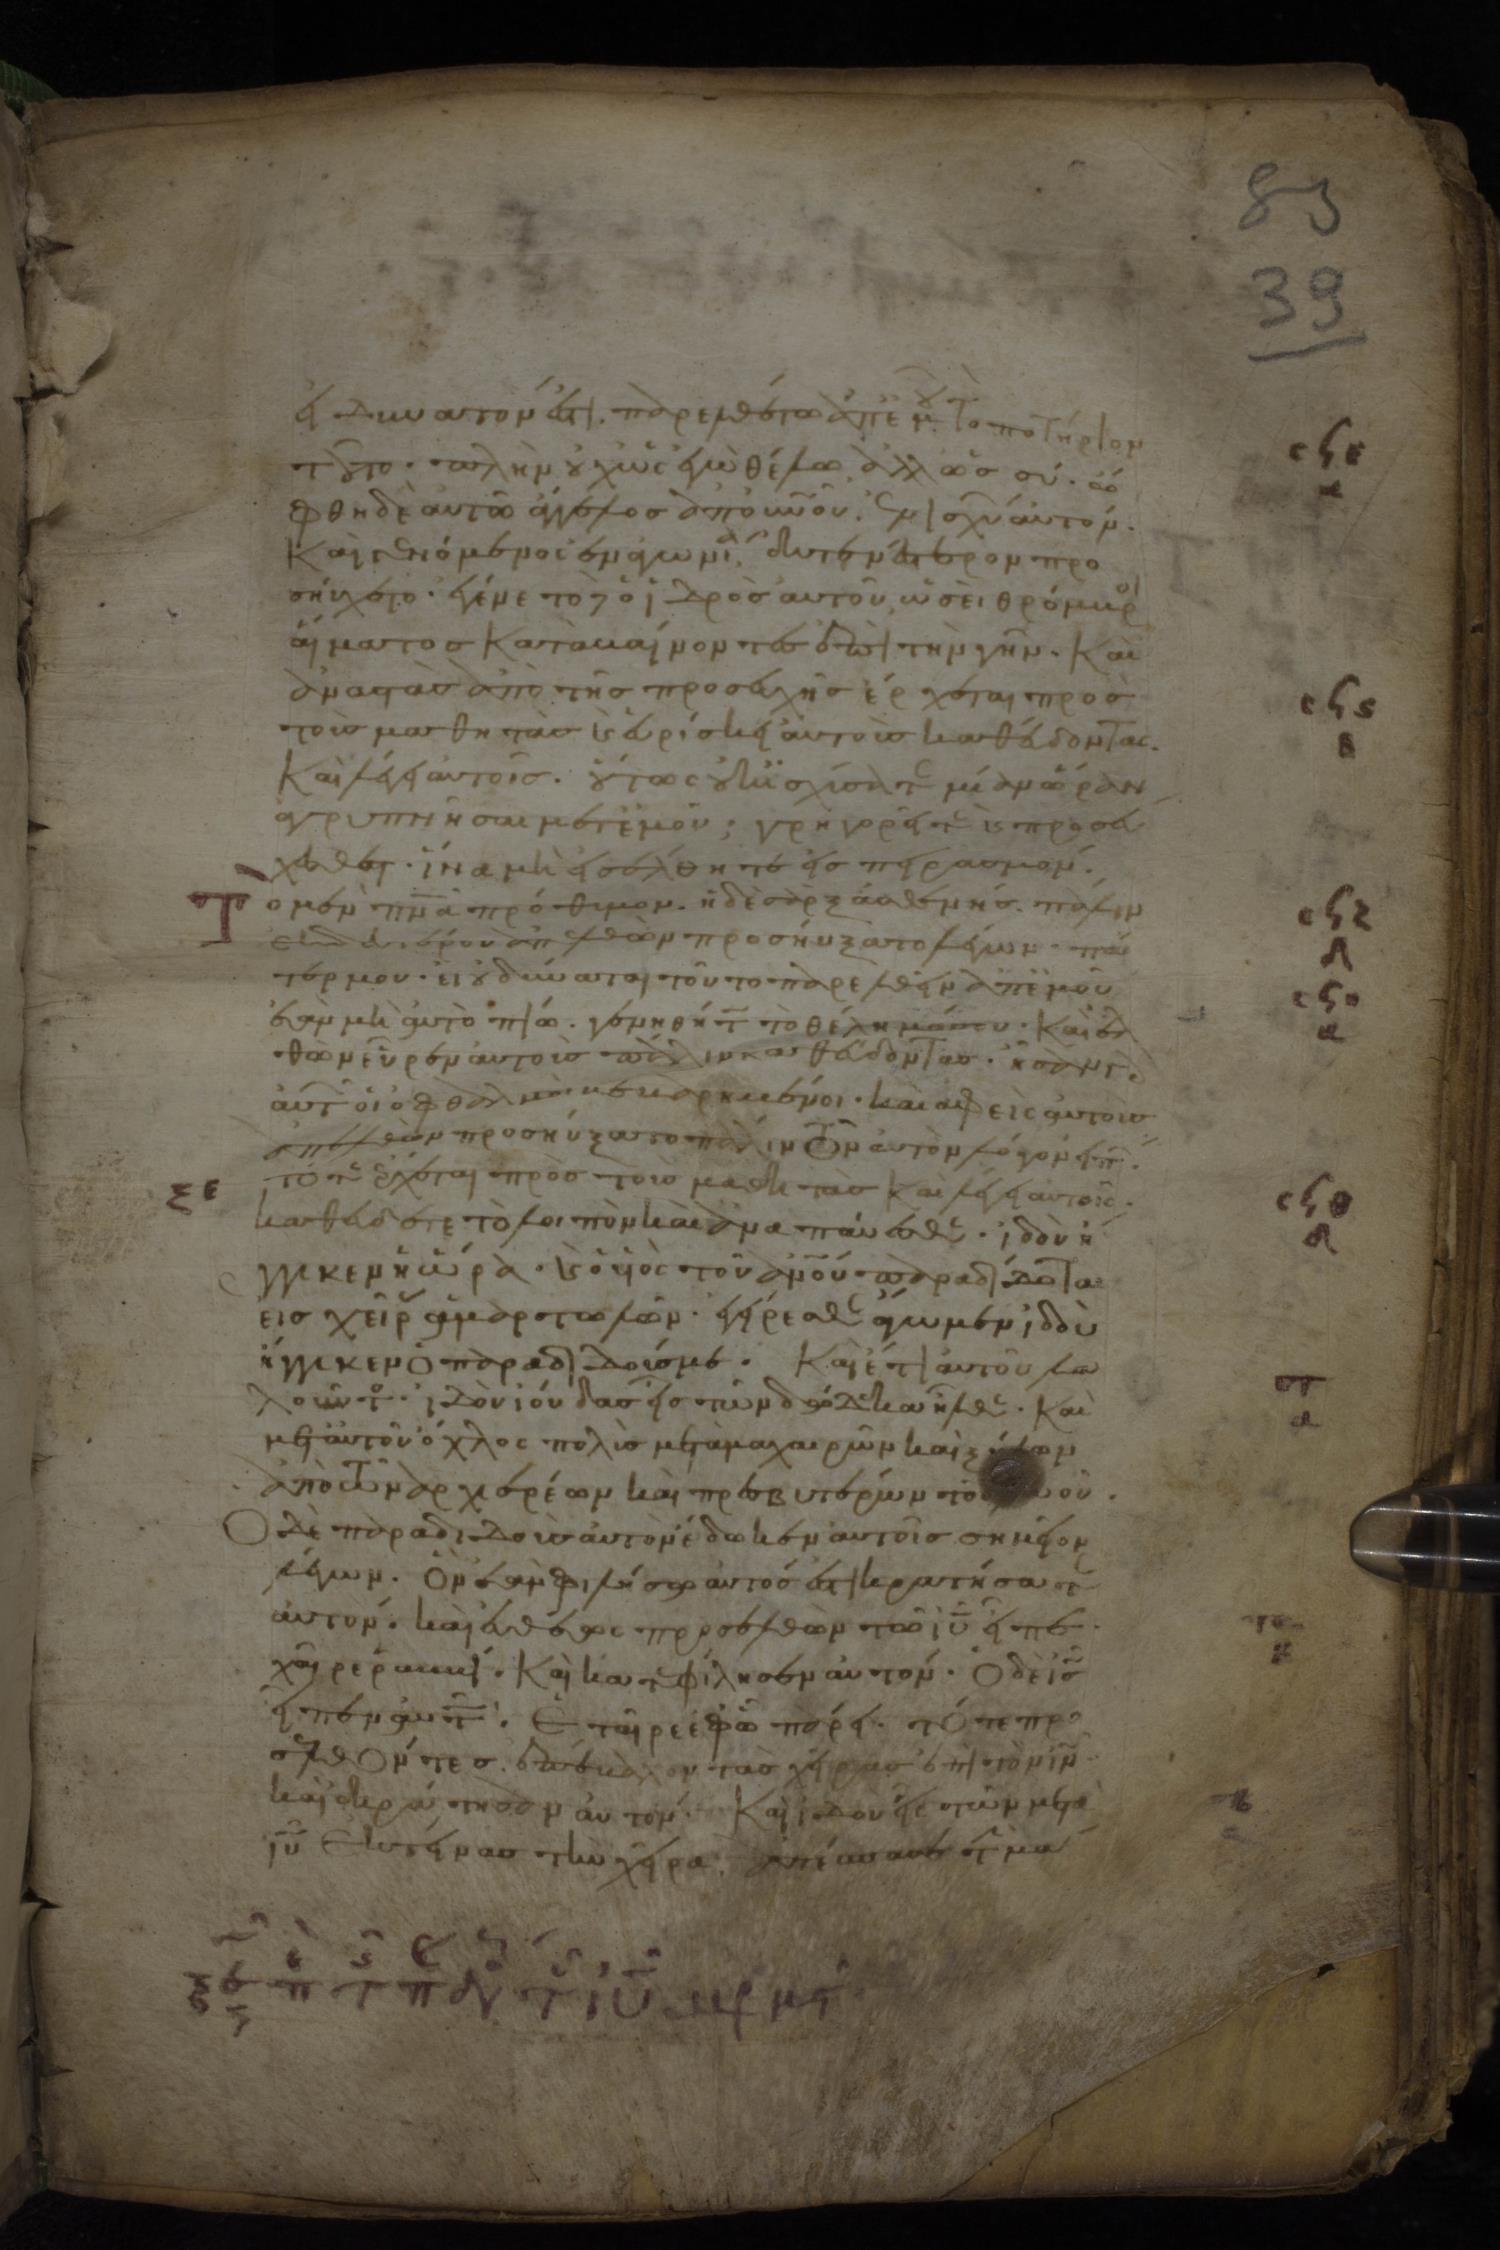 83
39
εἰ δυνατόν ἐστι. παρελθέτω ἀπ' ἐμοῦ τὸ ποτήριον
τοῦτο. πλὴν οὐχ ὡς ἐγὼ θέλω ἀλλ' ὡς σύ. ὤ
φθη δὲ αὐτῶ ἄγγελος ἀπ' οὐνοῦ. ἐνισχύων αὐτόν.
Καὶ γενόμενος ἐν ἀγωνίᾳ, ἐκτενέστερον προ
σηύχετο. ἐγένετο δὲ ὁ ἱδρὼς αὐτοῦ, ὡσεὶ θρόμβοι
αἵματος καταβαίνοντος ἐπὶ τὴν γῆν. Καὶ
ἀναστὰς ἀπὸ τῆς προσευχῆς ἔρχεται πρὸς
τοὺς μαθητὰς καὶ εὑρίσκει αὐτοὺς καθεύδοντας.
Καὶ λέγει αὐτοῖς. οὕτως οὐκ ἰσχύσατε μίαν ὥραν
γρηγορῆσαι μετ' ἐμοῦ; γρηγορεῖτε καὶ προσεύ
χεσθε. ἵνα μὴ εἰσέλθητε εἰς πειρασμόν.
Τὸ μὲν πνᾶ πρόθυμον. ἡ δὲ σὰρξ ἀσθενής. πάλιν
ἐκ δευτέρου ἀπελθὼν προσηύξατο λέγων. πά
τερ μου. εἰ οὐ δύναται τοῦτο παρελθεῖν ἀπ' ἐμοῦ
ἐὰν μὴ αὐτὸ πίω. γενηθήτω τὸ θέλημά σου. Καὶ ἐλ
θὼν εὗρεν αὐτοὺς πάλιν καθεύδοντας. ἦσαν γὰρ
αὐτῶν οἱ ὀφθαλμοὶ βεβαρημένοι. καὶ ἀφεὶς αὐτοὺς
ἀπελθὼν προσηύξατο πάλιν τὸν αὐτὸν λόγον εἰπών.
τότε ἔρχεται πρὸς τοὺς μαθητὰς καὶ λέγει αὐτοῖς.
καθεύδετε τὸ λοιπὸν καὶ ἀναπαύεσθε. ἰδοὺ ἤ
γγικεν ἡ ὥρα. καὶ ὁ υἱὸς τοῦ ἀνοῦ παραδίδοται
εἰς χεῖρας ἁμαρτωλῶν. ἐγείρεσθε ἄγωμεν ἰδοὺ
ἤγγικεν ὁ παραδιδούς με. Καὶ ἔτι αὐτοῦ λα
λοῦντος. ἰδοὺ ἰούδας εἷς τῶν δώδεκα ἦλθε. Καὶ
μετ' αὐτοῦ ὄχλος πολὺς μετὰ μαχαιρῶν καὶ ξύλων
ἀπὸ τῶν ἀρχιερέων καὶ πρεσβυτέρων τοῦ λαοῦ.
Ὁ δὲ παραδιδοὺς αὐτὸν ἔδωκεν αὐτοῖς σημεῖον
λέγων. ὃν ἐὰν φιλήσω αὐτός ἐστι κρατήσατε
αὐτόν. καὶ εὐθέως προσελθὼν τῶ ἰῦ εἶπε.
χαῖρε ῥαββί. Καὶ κατεφίλησεν αὐτόν. Ὁ δὲ ἰς
εἶπεν αὐτῶ. Ἑταῖρε ἐφ' ὧ πάρει. τότε προ
σελθόντες. ἐπέβαλον τὰς χεῖρας ἐπὶ τὸν ἰν
καὶ ἐκράτησαν αὐτόν. Καὶ ἰδοὺ εἷς τῶν μετὰ
ἰῦ ἐκτείνας τὴν χεῖρα. ἀπέσπασε τὴν μά
ξε